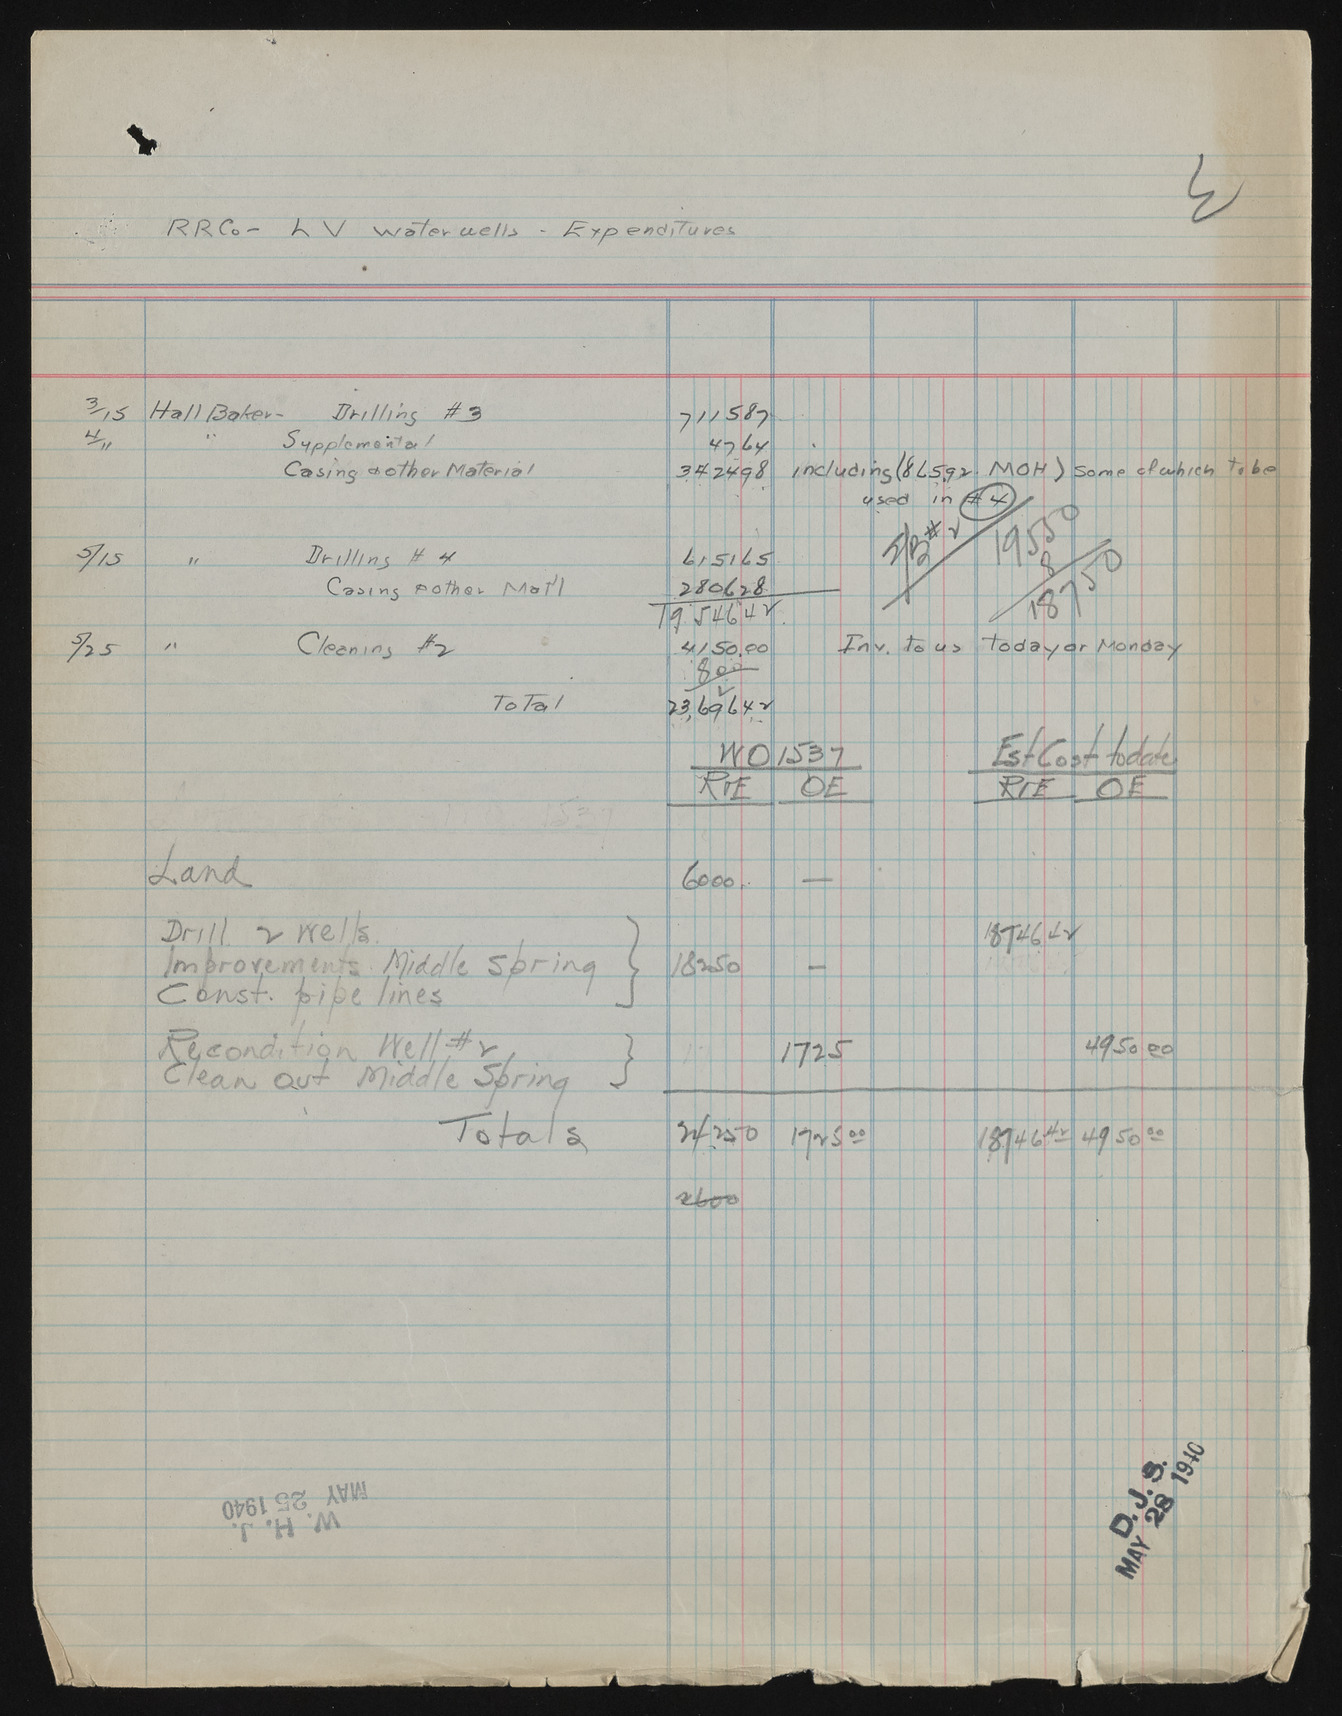 RRCo - LV Water wells - Expenditures
3/15 Hall Baker- Drilling #3 711587
4/11 " Supplemental 4764
Casing & other Material 342498 including (865.92 MOH) some of which to be
used in #4
5/15 " Drilling # 4 615165
Casing & other Mat'l 280628
1954642
S/B #2 19550
8
18750
5/25 " Cleaning #2 4150.00 Inv. to us today or Monday
800
Total 23,69642
WO 1537 Est Cost to date
R&E OE R&E OE
Land 6000. —
Drill 2 Wells. 1874642
Improvements Middle Spring 18250 —
Const. pipe lines
Recondition Well #2 1725 4950 00
Clean out Middle Spring
Totals 24250 1725 00 18746 42 4950 00
2600
W. H. J.
MAY 25 1940
D. J. S.
MAY 28 1940